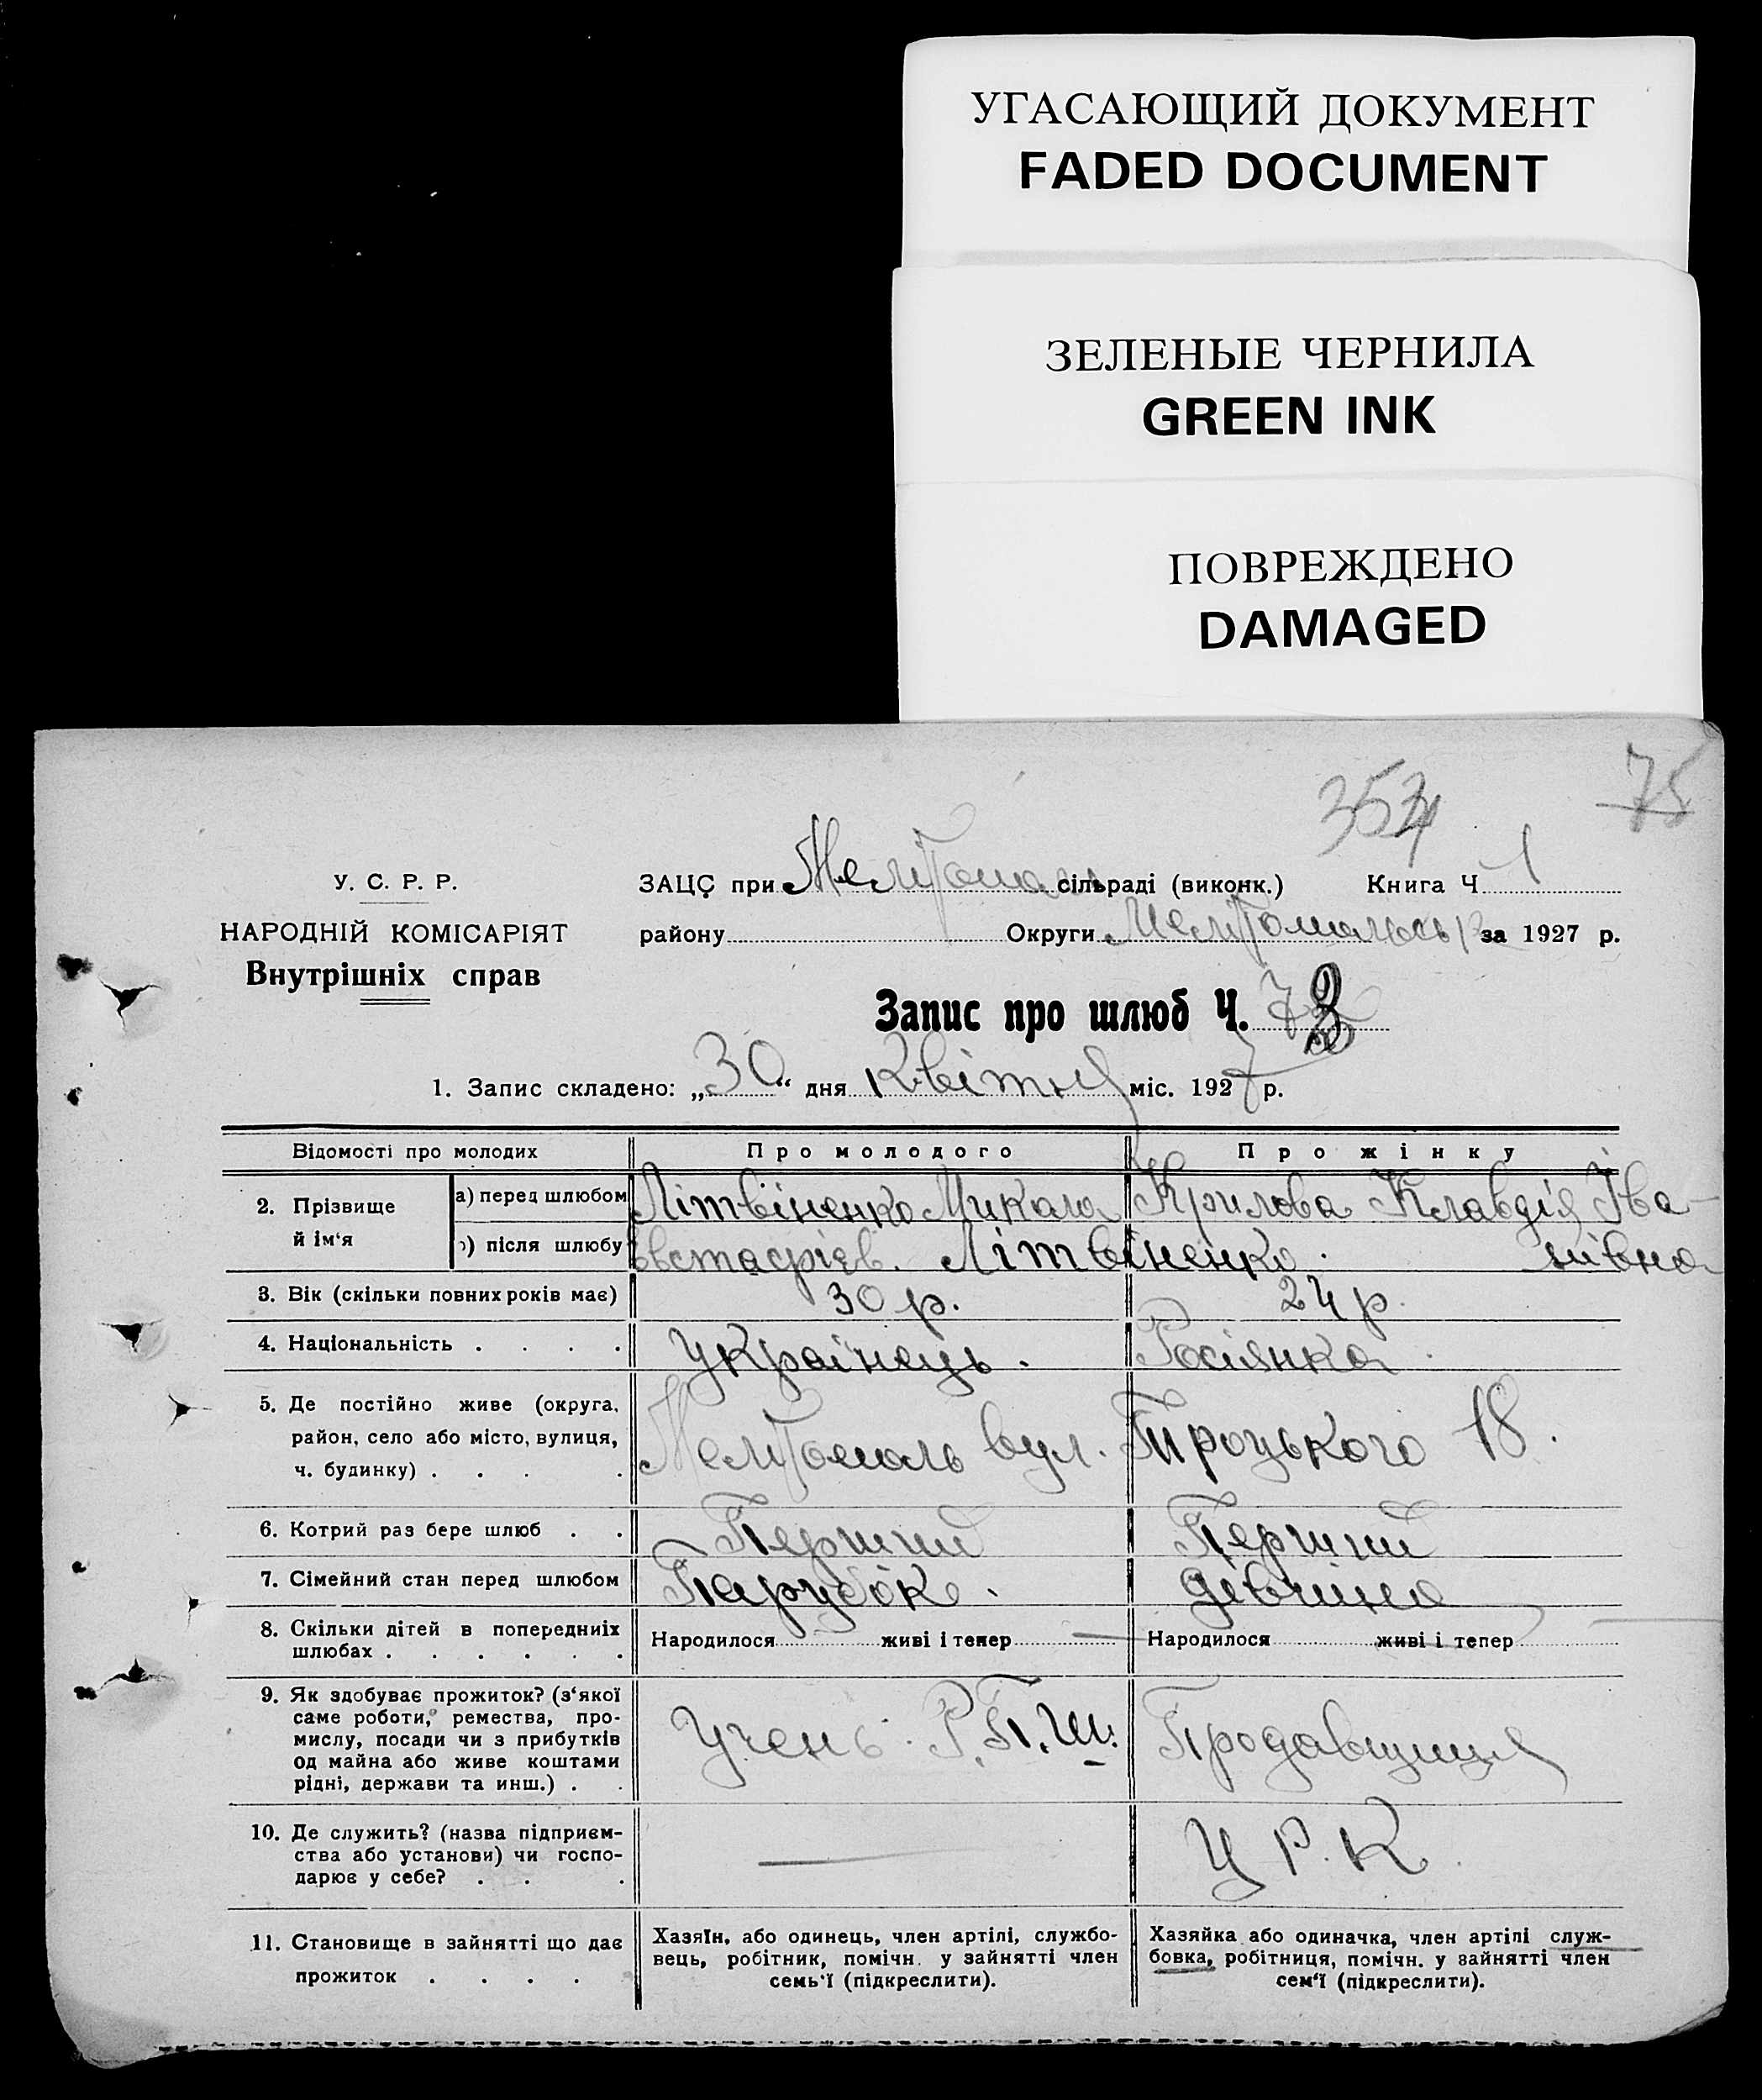 УГАСАЮЩИЙ ДОКУМЕНТ
FADED DOCUMENT
ЗЕЛЕНЫЕ ЧЕРНИЛА
GREEN INK
ПОВРЕЖДЕНО
DAMAGED
75
354
У. С. Р. Р.
НАРОДНІЙ КОМІСАРІЯТ
Внутрішніх справ
ЗАЦС при Мелітополь сільраді (виконк.) Книга Ч 1
району Округи Мелітопольськ за 1927 р.
Запис про шлюб Ч. 73
1. Запис складено: „30“ дня Квітня міс. 1927 р.
Відомості про молодих
Про молодого
Про жінку
2. Прізвище й ім‘я
а) перед шлюбом
Літвіненко Микола
Крилова Клавдія Іва-
б) після шлюбу
Євстафієв. Літвіненко.
нівна
3. Вік (скільки повних років має)
30 р.
24 р.
4. Національність . . . .
Українець.
Росіянка
5. Де постійно живе (округа,
район, село або місто, вулиця,
ч. будинку) . . . .
Мелітополь вул. Троцького 18.
6. Котрий раз бере шлюб . .
Перший
Перший
7. Сімейний стан перед шлюбом
Парубок.
дівчина
8. Скільки дітей в попередниіх
шлюбах . . . . . .
Народилося живі і тепер
Народилося живі і тепер
9. Як здобуває прожиток? (з‘якої
саме роботи, ремества, про-
мислу, посади чи з прибутків
од майна або живе коштами
рідні, держави та инш.) . .
Учень. Р.П.Ш.
Продавщиця
10. Де служить? (назва підприєм-
ства або установи) чи госпо-
дарює у себе? . . .
Ц Р. К.
11. Становище в зайнятті що дає
прожиток . . . .
Хазяїн, або одинець, член артілі, службо-
вець, робітник, помічн. у зайнятті член
семь‘ї (підкреслити).
Хазяйка або одиначка, член артілі служ-
бовка, робітниця, помічн. у зайнятті член
сем‘ї (підкреслити).